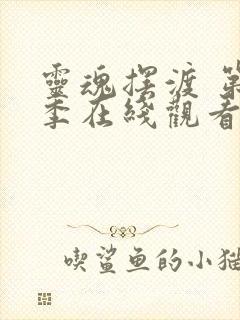 靈魂摆渡 第
季在綫觀看
喫鲨鱼的小猫